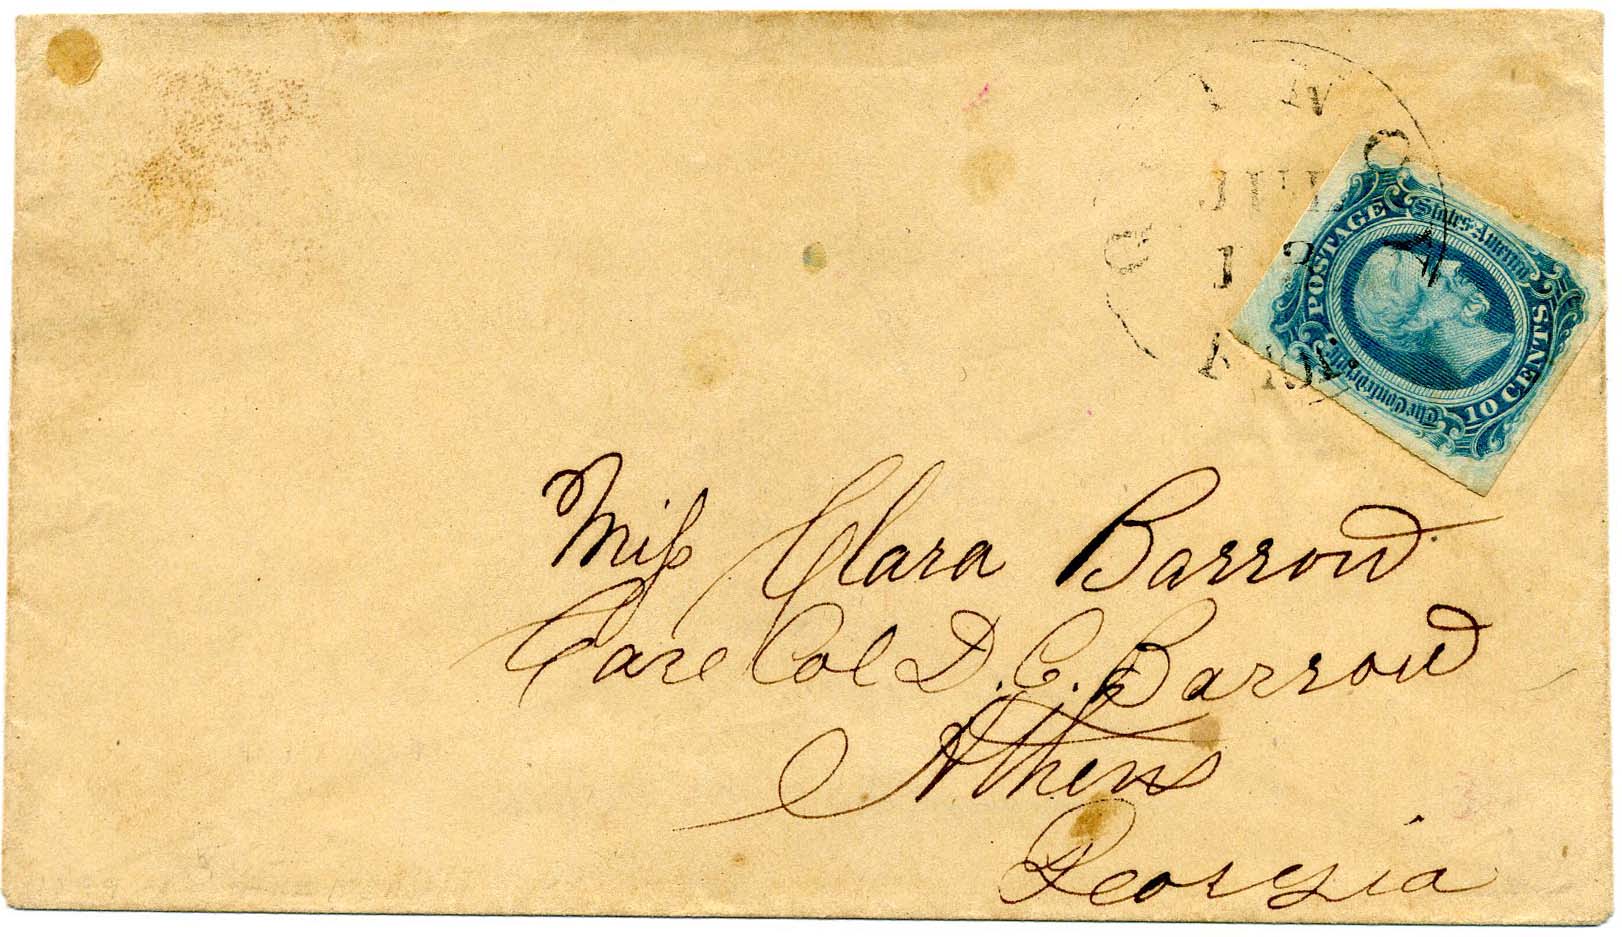 JUL
12
The Confederate States America
POSTAGE
10 CENTS
Miss Clara Barrow
Care Col D. C. Barrow
Athens
Georgia